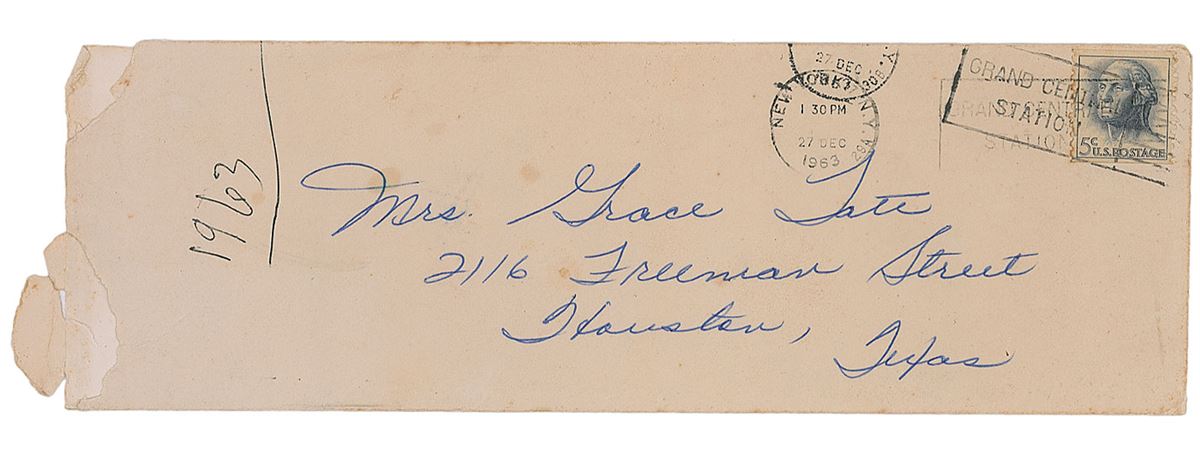 27 DEC
NEW YORK, N.Y.
1 30 PM
27 DEC
1963
GRAND CENTRAL
STATION
GRAND CENTRAL
STATION
5¢ U.S. POSTAGE
1963
Mrs. Grace Tate
2116 Freeman Street
Houston,
Texas